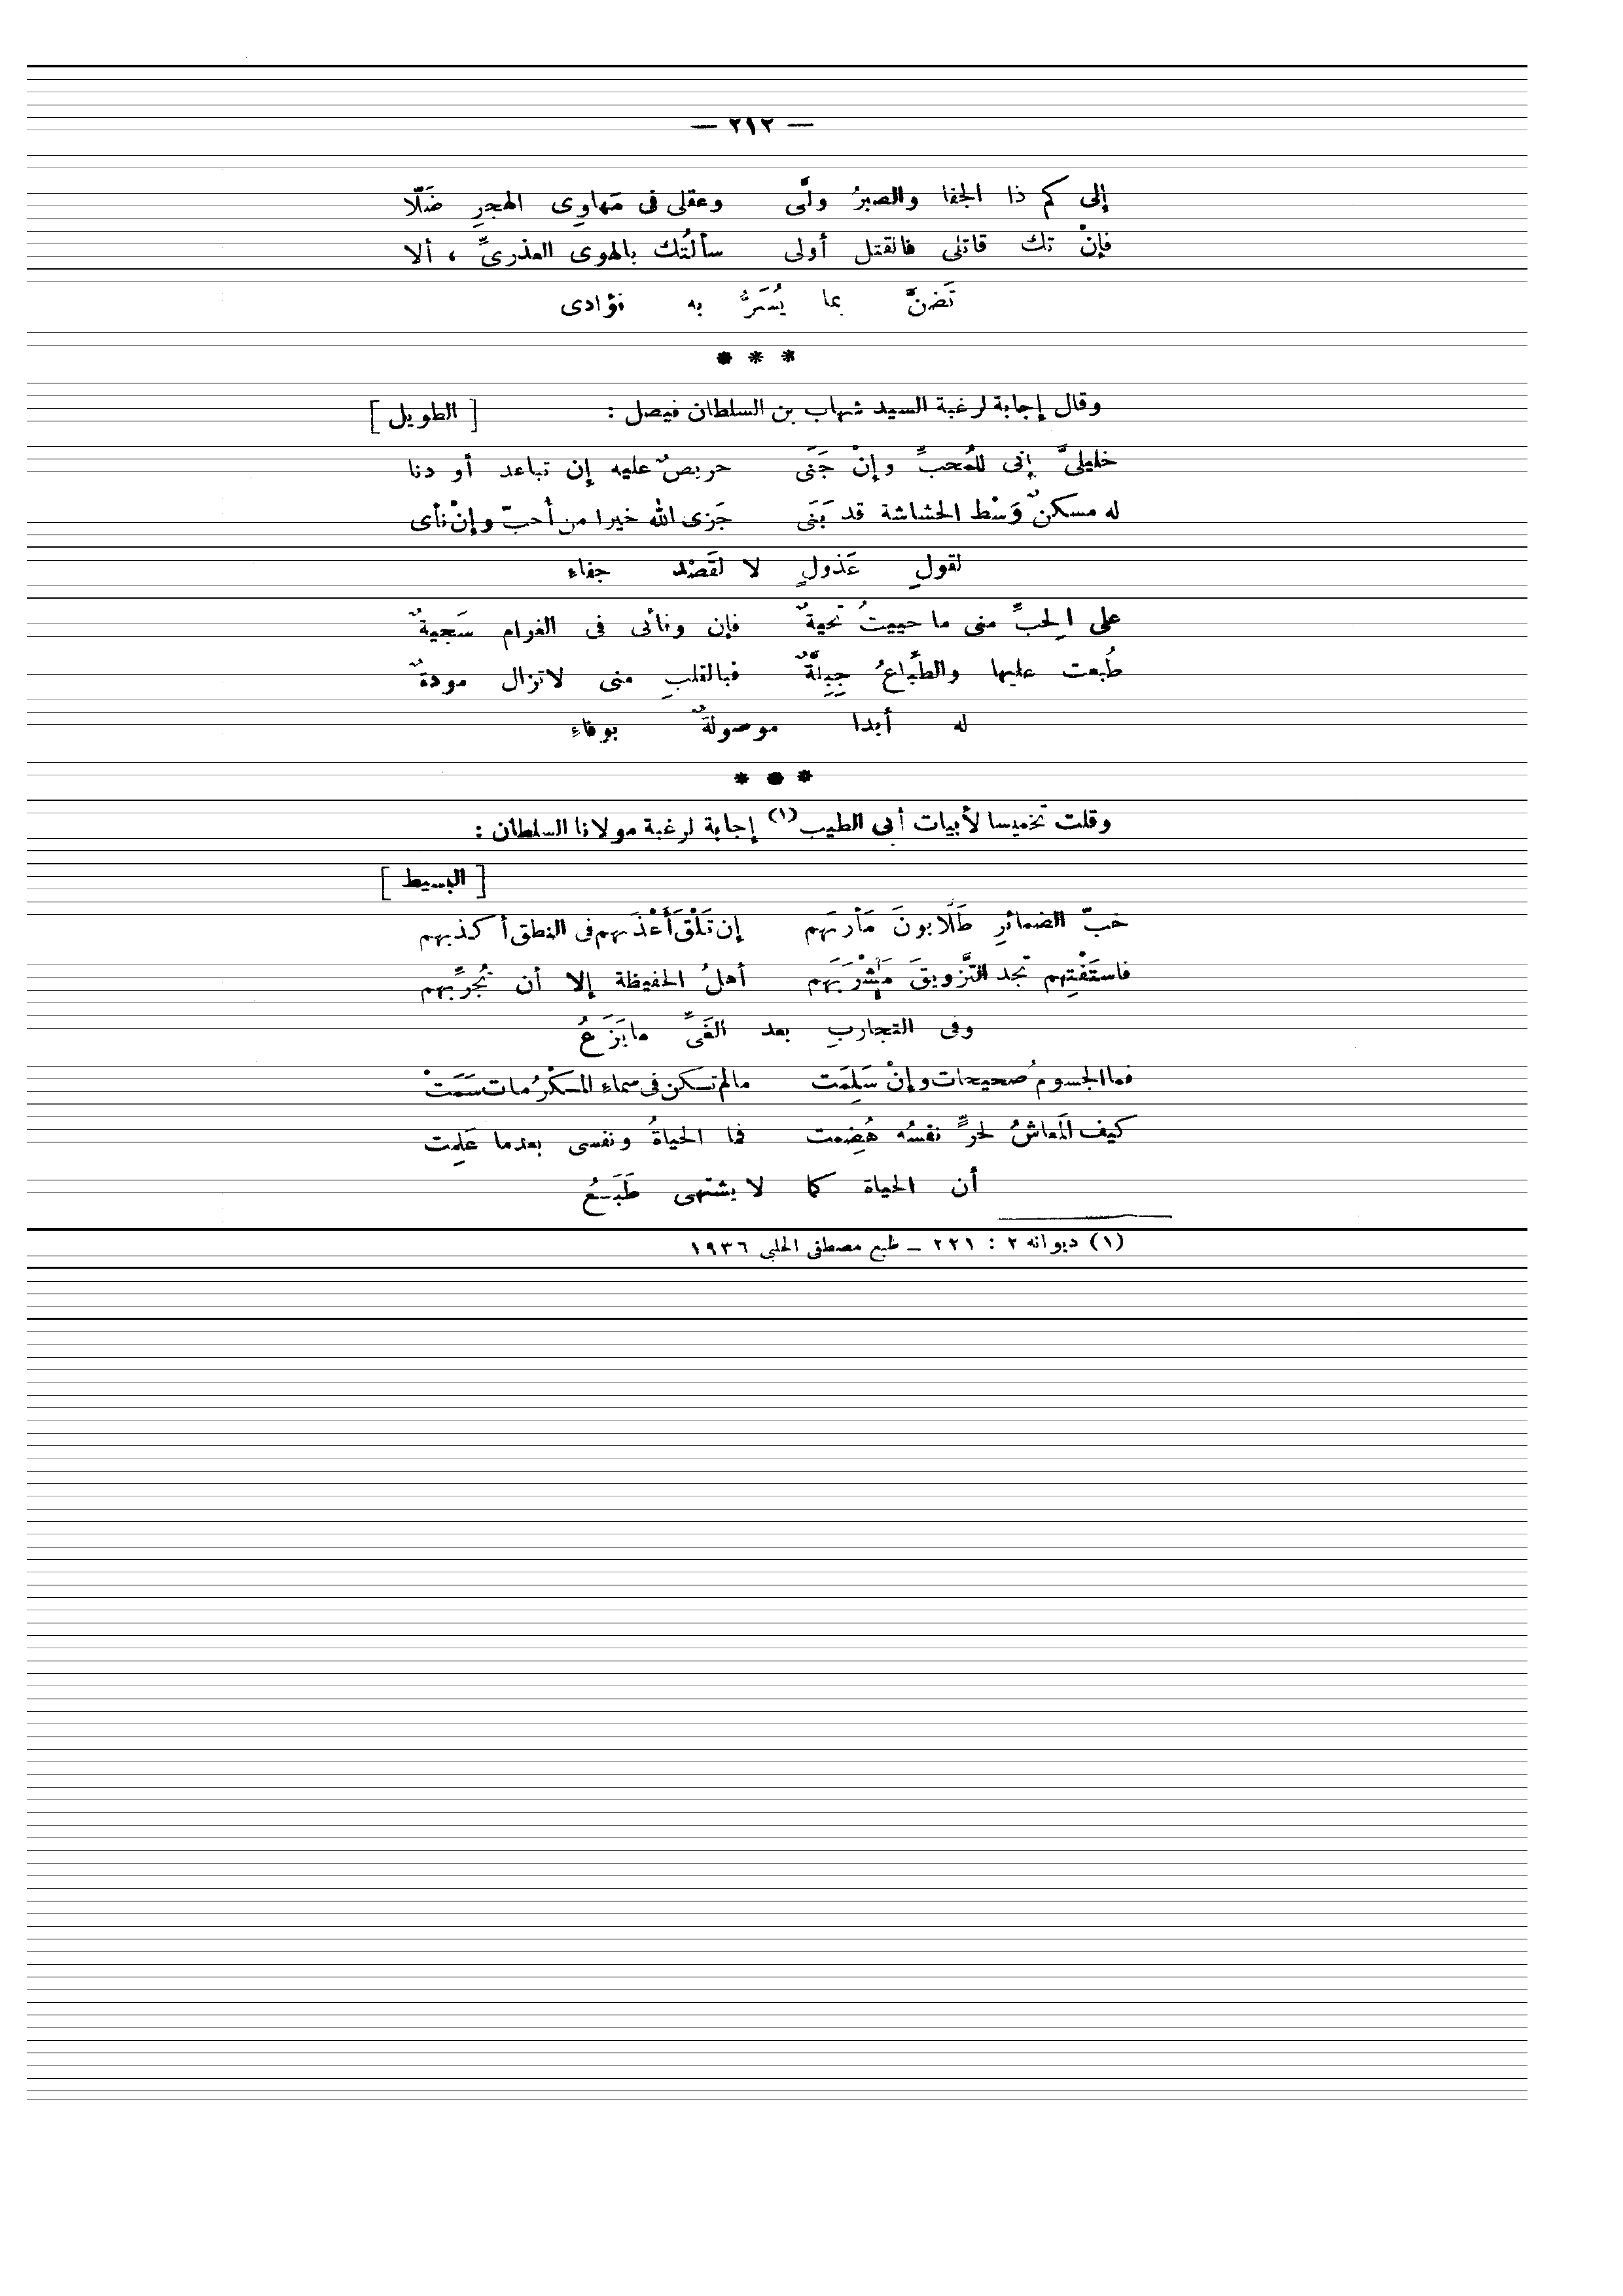 — ٢١٢ —
إلى كم ذا الجفا والصبرُ ولَّى وعقلى فى مَهاوِى الهجرِ ضَلّا
فإنْ تك قاتلى فالقتل أولى سألتُك بالهوى العذرىِّ ، ألا
تَضنَّ بما يُسَرُّ به فؤادى
* * *
وقال إجابة لرغبة السيد شهاب بن السلطان فيصل : [ الطويل ]
خليلىَّ إنى للمُحبِّ وإنْ جَنَى حريصٌ عليه إن تباعد أو دنا
له مسكنٌ وَسْط الحشاشة قد بَنَى جَزى الله خيرا من أحبّ وإنْ نأى
لقولِ عَذولٍ لا لقَصْد جفاء
على الحِبِّ منى ما حييتُ تحيةٌ فإن ونأى فى الغرام سَجيةٌ
طُبعت عليها والطِّباعُ جِبِلَّةٌ فبالقلبِ منى لا تزال مودةٌ
له أبدا موصولةٌ بوفاءِ
* * *
وقلت تخميسا لأبيات أبى الطيب (١) إجابة لرغبة مولانا السلطان :
[ البسيط ]
خبّ الضمائرِ طَلّابونَ مَأربَهم إن تَلْقَ أَعْذَبهم فى النطق أكذبهم
فاستَفْتِهم تجد التَّزويقَ مَشْرَبَهم أهلُ الحفيظة إلا أن تُجرِّبهم
وفى التجاربِ بعد الغَىِّ ما يَزَعُ
فما الجسومُ صحيحات وإنْ سَلِمَت مالم تكن فى سماء المكْرُمات سَمَتْ
كيف المَعاشُ لحرٍّ نفسُه هُضِمت فما الحياةُ ونفسى بعدما عَلِمت
أن الحياة كما لا يشتهى طَبَعُ
(١) ديوانه ٢ : ٢٢١ ــ طبع مصطفى الحلبى ١٩٣٦